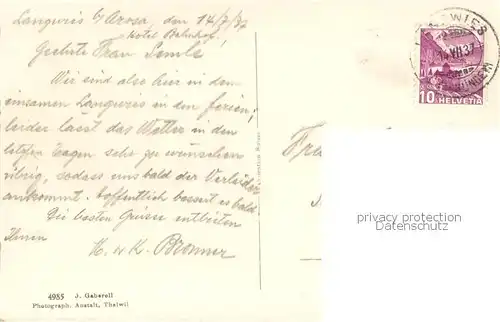 Langwies b/ Arosa, den 14/7/37
Hotel Bahnhof.
Geehrte Frau
Wir sind also hier in dem
einsamen Langwies in den Ferien;
leider lässt das Wetter in den
letzten Tagen sehr zu wünschen
übrig, sodass uns bald der Verleider
ankommt. hoffentlich bessert es bald.
Die besten Grüsse entbieten
Ihnen
H. & K. Bronner
4985 J. Gaberell
Photograph. Anstalt, Thalwil
10 HELVETIA
privacy protection
Datenschutz